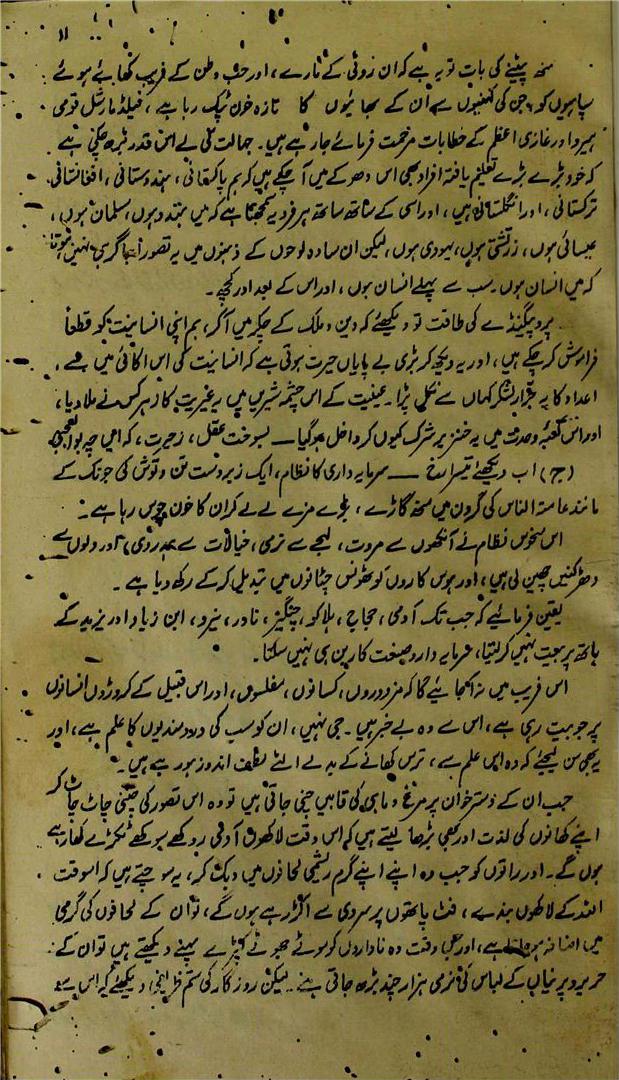 ۱۱
منھ پیٹنے کی بات تو یہ ہے کہ ان روٹی کے مارے، اور حب وطن کے فریب کھائے ہوئے
سپاہیوں کو، جن کی سے ان کے بھائیوں کا تازہ خون ٹپک رہا ہے، فیلڈ مارشل قومی
ہیرو اور غازی اعظم کے خطابات مرحمت فرمائے جا رہے ہیں۔ جہالت کی لے اس قدر بڑھ چکی ہے
کہ خود بڑے بڑے تعلیم یافتہ افراد بھی اس دھوکے میں آ چکے ہیں کہ ہم پاکستانی، ہندوستانی، افغانستانی
ترکستانی، اور انگلستانی ہیں، اور اسی کے ساتھ ساتھ ہر فرد یہ سمجھتا ہے کہ میں ہندو ہوں، مسلمان ہوں،
عیسائی ہوں، زرتشتی ہوں، یہودی ہوں، لیکن ان سادہ لوحوں کے ذہنوں میں یہ تصور اجاگر ہی نہیں ہوتا
کہ میں انسان ہوں۔ سب سے پہلے انسان ہوں، اور اس کے بعد اور کچھ۔
پروپیگنڈے کی طاقت تو دیکھئے کہ دین و ملک کے چکر میں آکر، ہم اپنی انسانیت کو قطعاً
فراموش کر چکے ہیں، اور یہ دیکھ کر بڑی بے پایاں حیرت ہوتی ہے کہ انسانیت کی اس اکائی میں سے،
اعداد کا یہ جرار لشکر کہاں سے نکل پڑا۔ عینیت کے اس چشمۂ شیریں میں یہ غیریت کا زہر کس نے ملا دیا،
اور اس کعبۂ وحدت میں یہ خنزیر شرک کیوں کر داخل ہو گیا — بسوخت عقل، زحیرت، کہ ایں چہ بوالعجبی
(ج) اب دیکھئے تیسرا رخ — سرمایہ داری کا نظام، ایک زبردست تن و توش کی جونک کے
مانند عامۃ الناس کی گردن میں منھ گاڑے، بڑے مزے لے لے کر ان کا خون چوس رہا ہے۔
اس منحوس نظام نے آنکھوں سے مروت، لہجے سے نرمی، خیالات سے ہمدردی، اور دلوں سے
دھڑکنیں چھین لی ہیں، اور ہوس کاروں کو ٹھونس چٹانوں میں تبدیل کر کے رکھ دیا ہے۔
یقین فرمائیے کہ جب تک آدمی، حجاج، ہلاکو، چنگیز، نادر، نیرو، ابن زیاد اور یزید کے
ہاتھ پر بیعت نہیں کر لیتا، سرمایہ دار و صنعت کار بن ہی نہیں سکتا۔
اس فریب میں نہ آ جائیے گا کہ مزدوروں، کسانوں، مفلسوں، اور اس قبیل کے کروڑوں انسانوں
پر جو بیت رہی ہے، اس سے وہ بے خبر ہیں۔ جی نہیں، ان کو سب کی دردمندیوں کا علم ہے، اور
یہ بھی سن لیجئے کہ وہ اس علم سے، ترس کھانے کے بدلے الٹے لطف اندوز ہو رہے ہیں۔
جب ان کے دسترخوان پر مرغ و ماہی کی قابیں چنی جاتی ہیں تو وہ اس تصور کی چٹنی چاٹ چاٹ کر
اپنے کھانوں کی لذت اور بھی بڑھا لیتے ہیں کہ اس وقت لاکھوں آدمی روکھے سوکھے ٹکڑے کھا رہے
ہوں گے۔ اور راتوں کو جب وہ اپنے اپنے گرم ریشمی لحافوں میں دبک کر، یہ سوچتے ہیں کہ اس وقت
اللہ کے لاکھوں بندے، فٹ پاتھوں پر سردی سے اکڑ رہے ہوں گے، تو ان کے لحافوں کی گرمی
میں اضافہ ہے، اور جس وقت وہ ناداروں کو موٹے جھوٹے کپڑے پہنے دیکھتے ہیں تو ان کے
حریر و پرنیاں کے لباس کی نرمی ہزار چند بڑھ جاتی ہے۔ لیکن روزگار کی ستم ظریفی دیکھئے کہ اس سے